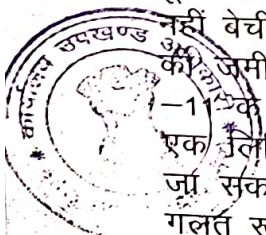 कार्यालय उपखण्ड अधिकारी
नहीं बेची
की जमी
–11 के
एक लि
जा सक
गलत रू